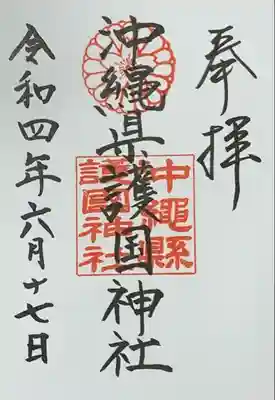 奉拝
沖縄県護国神社
沖繩縣護國神社
令和四年六月十七日